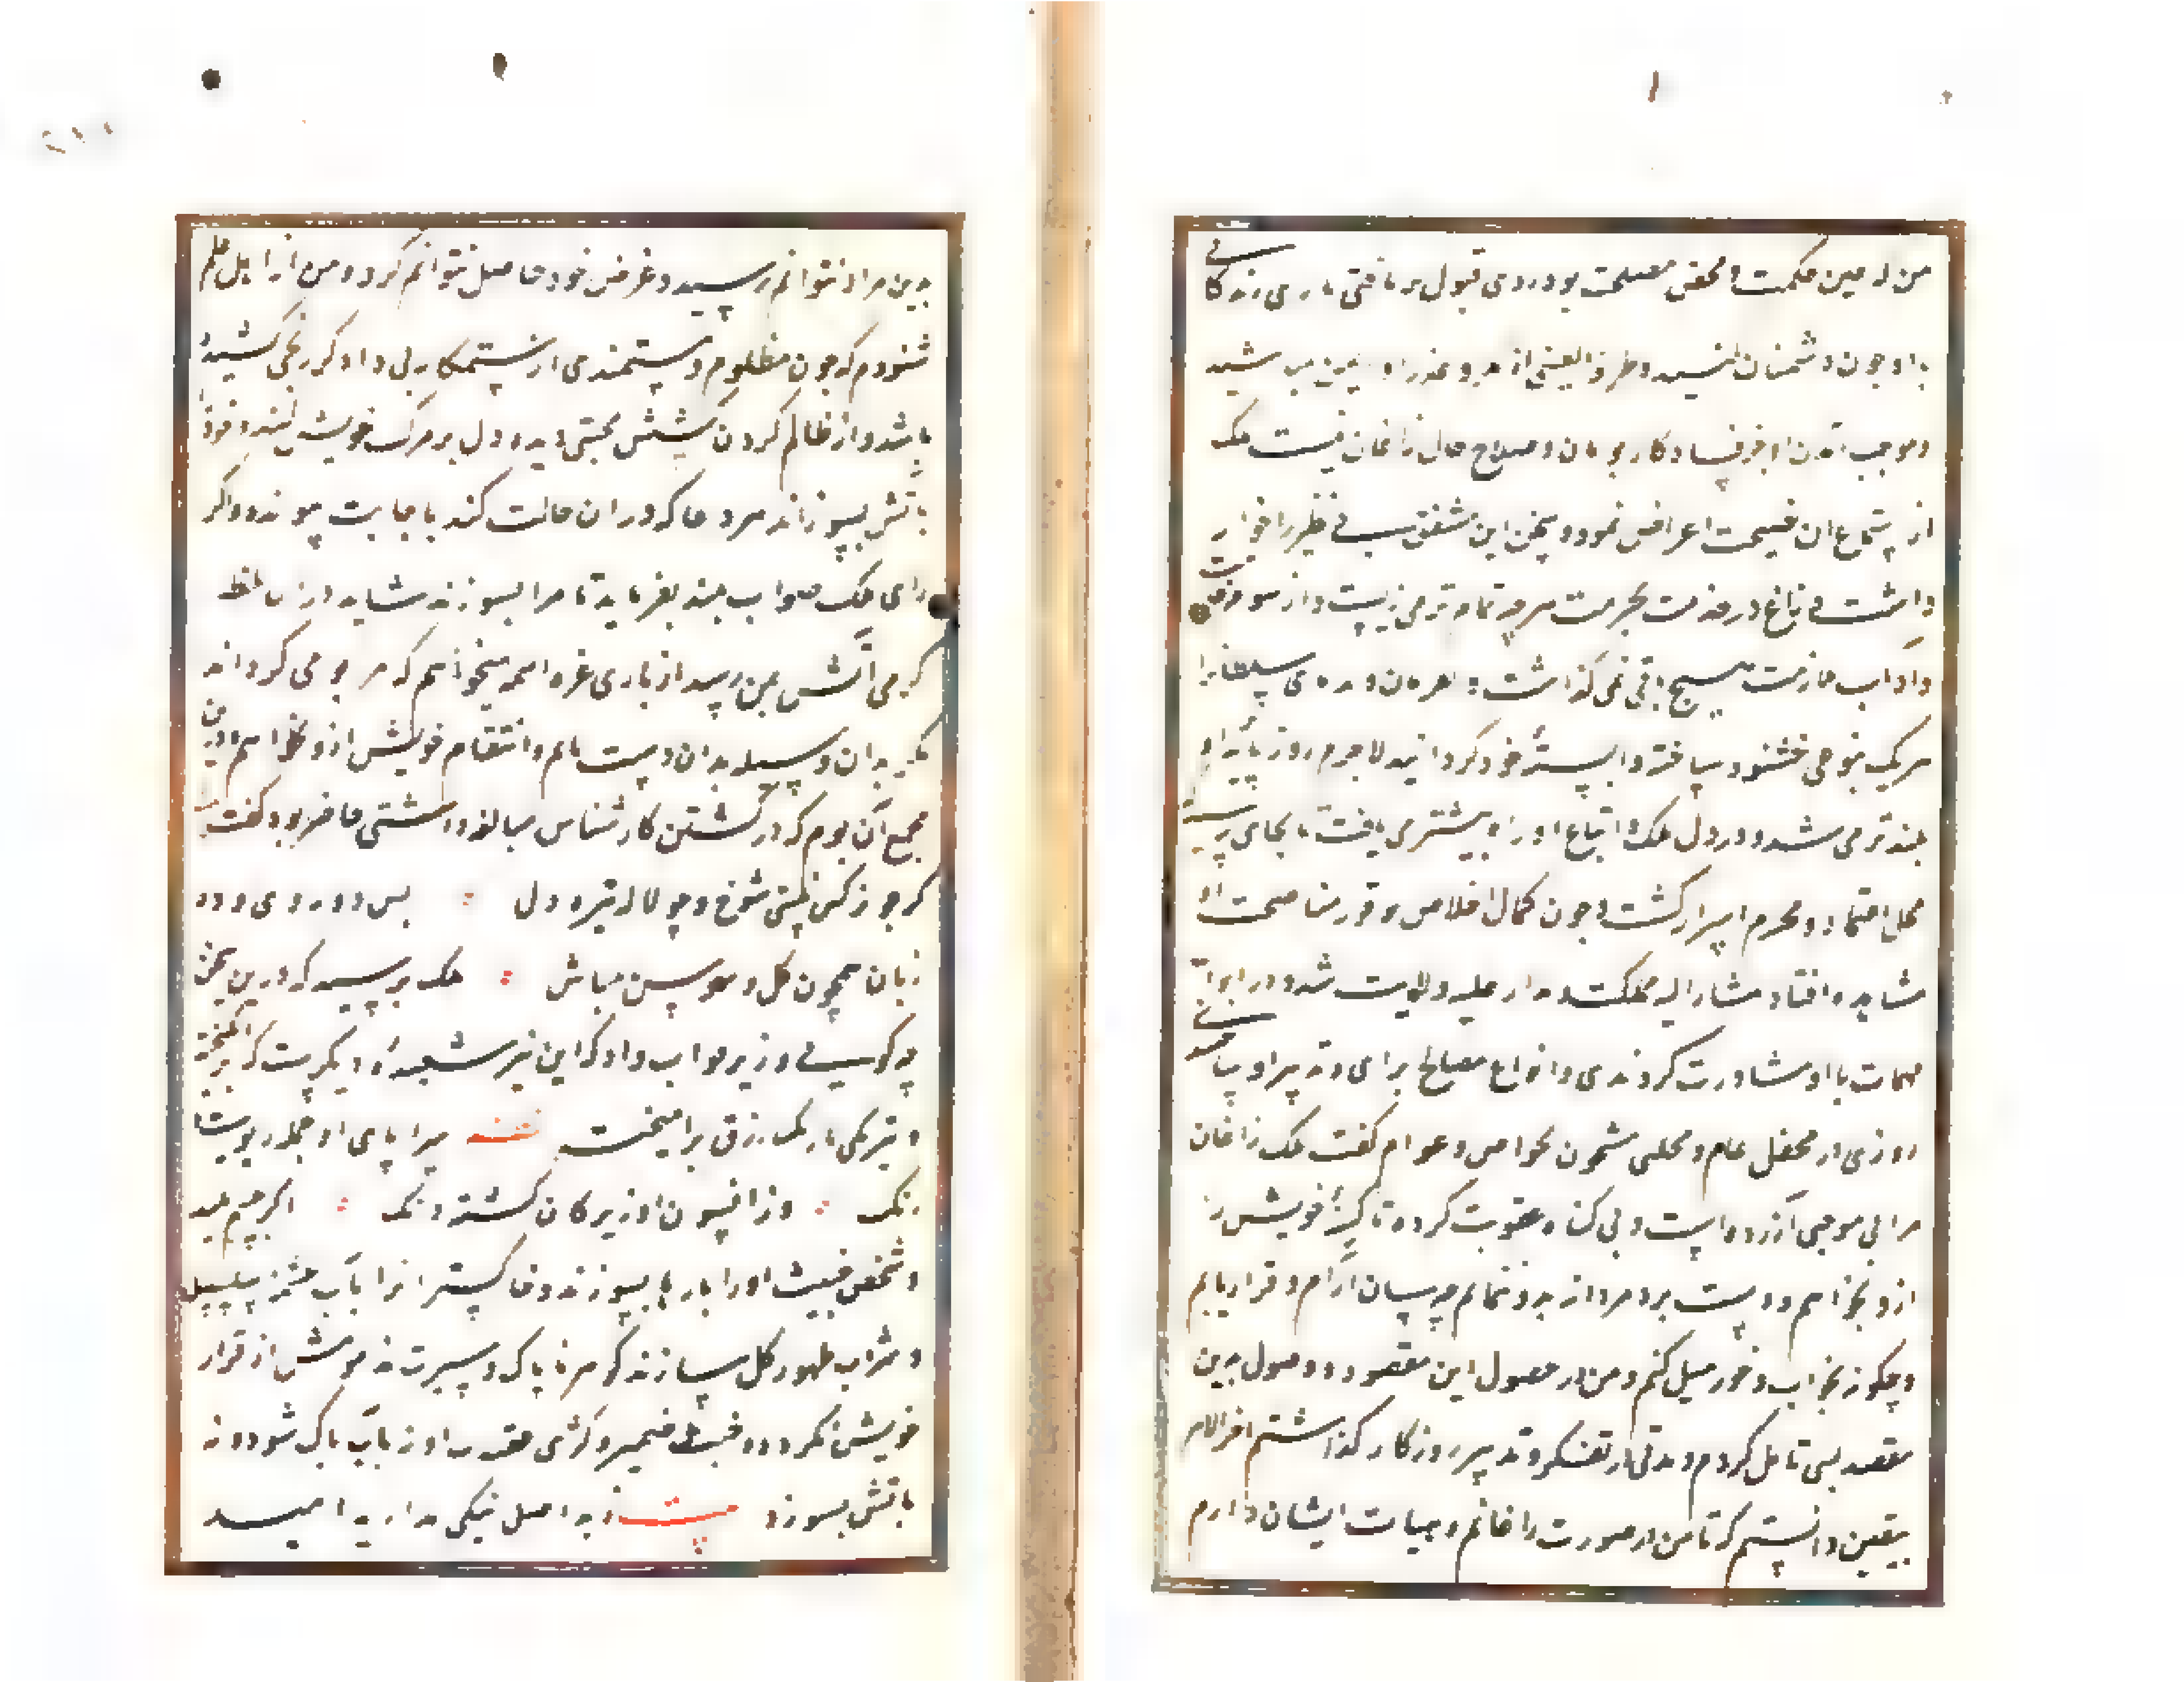 من که عین حکمت و محض مصلحت بود روی قبول بر نتافتی باری زندگانی
با او چون دشمنان کنید و طرفة العینی از مکر و غدر او ایمن مباشید
و موجب آمدن او جز فساد کار بومان و صلاح حال زاغان نیست ملک
از استماع آن نصیحت اعراض نمود و سخن این مشفق بی نظیر را خوار
داشت و زاغ در خدمت بحرمت هر چه تمامتر می زیست و از رسوم خدمت
و آداب ملازمت هیچ باقی نمی گذاشت
هر یک بنوعی خشنود ساخته وابستهٔ خود گردانید لاجرم روز پایهٔ او
بلند تر می شد و در دل ملک و اتباع او راه بیشتر می یافت تا بجای رسید
محل اعتماد و محرم اسرار گشت و چون کمال اخلاص و فور مناصحت او
مشاهده افتاد مشار الیه مملکت و مدار علیه ولایت شد و در ابواب
مهمات با او مشاورت کردندی و انواع مصالح برای و تدبیر او ساختندی
روزی در محفل عام و مجلس مشحون بخواص و عوام گفت ملک زاغان
مرا بی موجبی آزرده است و بی گناه عقوبت کرده تا کینهٔ خویش را
ازو بخواهم و دست برد مردانه بدو ننمایم چه سان آرام و قرار یابم
و چگونه بخواب و خور میل کنم و من در حصول این مقصود و وصول بدین
مقصد بسی تامل کردم و مدتی در تفکر و تدبیر روزگار گذاشتم آخر الامر
بیقین دانستم که تا من در صورت زاغانم و هیات ایشان دارم
بدین مراد نتوانم رسید و غرض خود حاصل نتوانم کرد و من از اهل علم
شنودم که چون مظلوم و مستمندی از ستمکار بی دادگر رنجی کشیده
باشد و از ظالم گردن کشش سختی دیده دل بر مرگ خویش نهد و خود را
بآتش بسوزاند هر دعا که در آن حالت کند باجابت پیوندد و اگر
رای ملک صواب بیند بفرماید تا مرا بسوزند شاید در آن لحظه
گرمی آتش بمن رسد از باری عز اسمه میخواهم که مرا بومی گرداند
مگر بدان وسیله بدان دست یابم و انتقام خویش ازو بخواهم و درین
مجمع آن بوم که در کشتن کارشناس مبالغه داشتی حاضر بود گفت
گر چو نرگس نیستی شوخ و چو لاله تیره دل ؛ پس دو روی و ده
زبان همچون گل و سوسن مباش ؛ ملک پرسید که درین سخن
چه گویی وزیر جواب داد که این نیز شعبدهٔ دیگر است که بر انگیخته
و نیرنگی بارنگ زرق بر آمیخت سراپای او جمله ریوست
رنگ ؛ وز افسون او زیرکان گشته دنگ ؛ اگر جسم پلید
و شخص خبیث او را بارها بسوزند و خاکستر آنرا بآب چشمهٔ سلسبیل
و شراب طهور گل سازند گوهر ناپاک و سیرت مذمومش از قرار
خویش نگردد و خبث ضمیر و کژی عقیدت او نه بآب پاک شود و نه
بآتش بسوزد بیت ز بد اصل نیکی مدارید امید